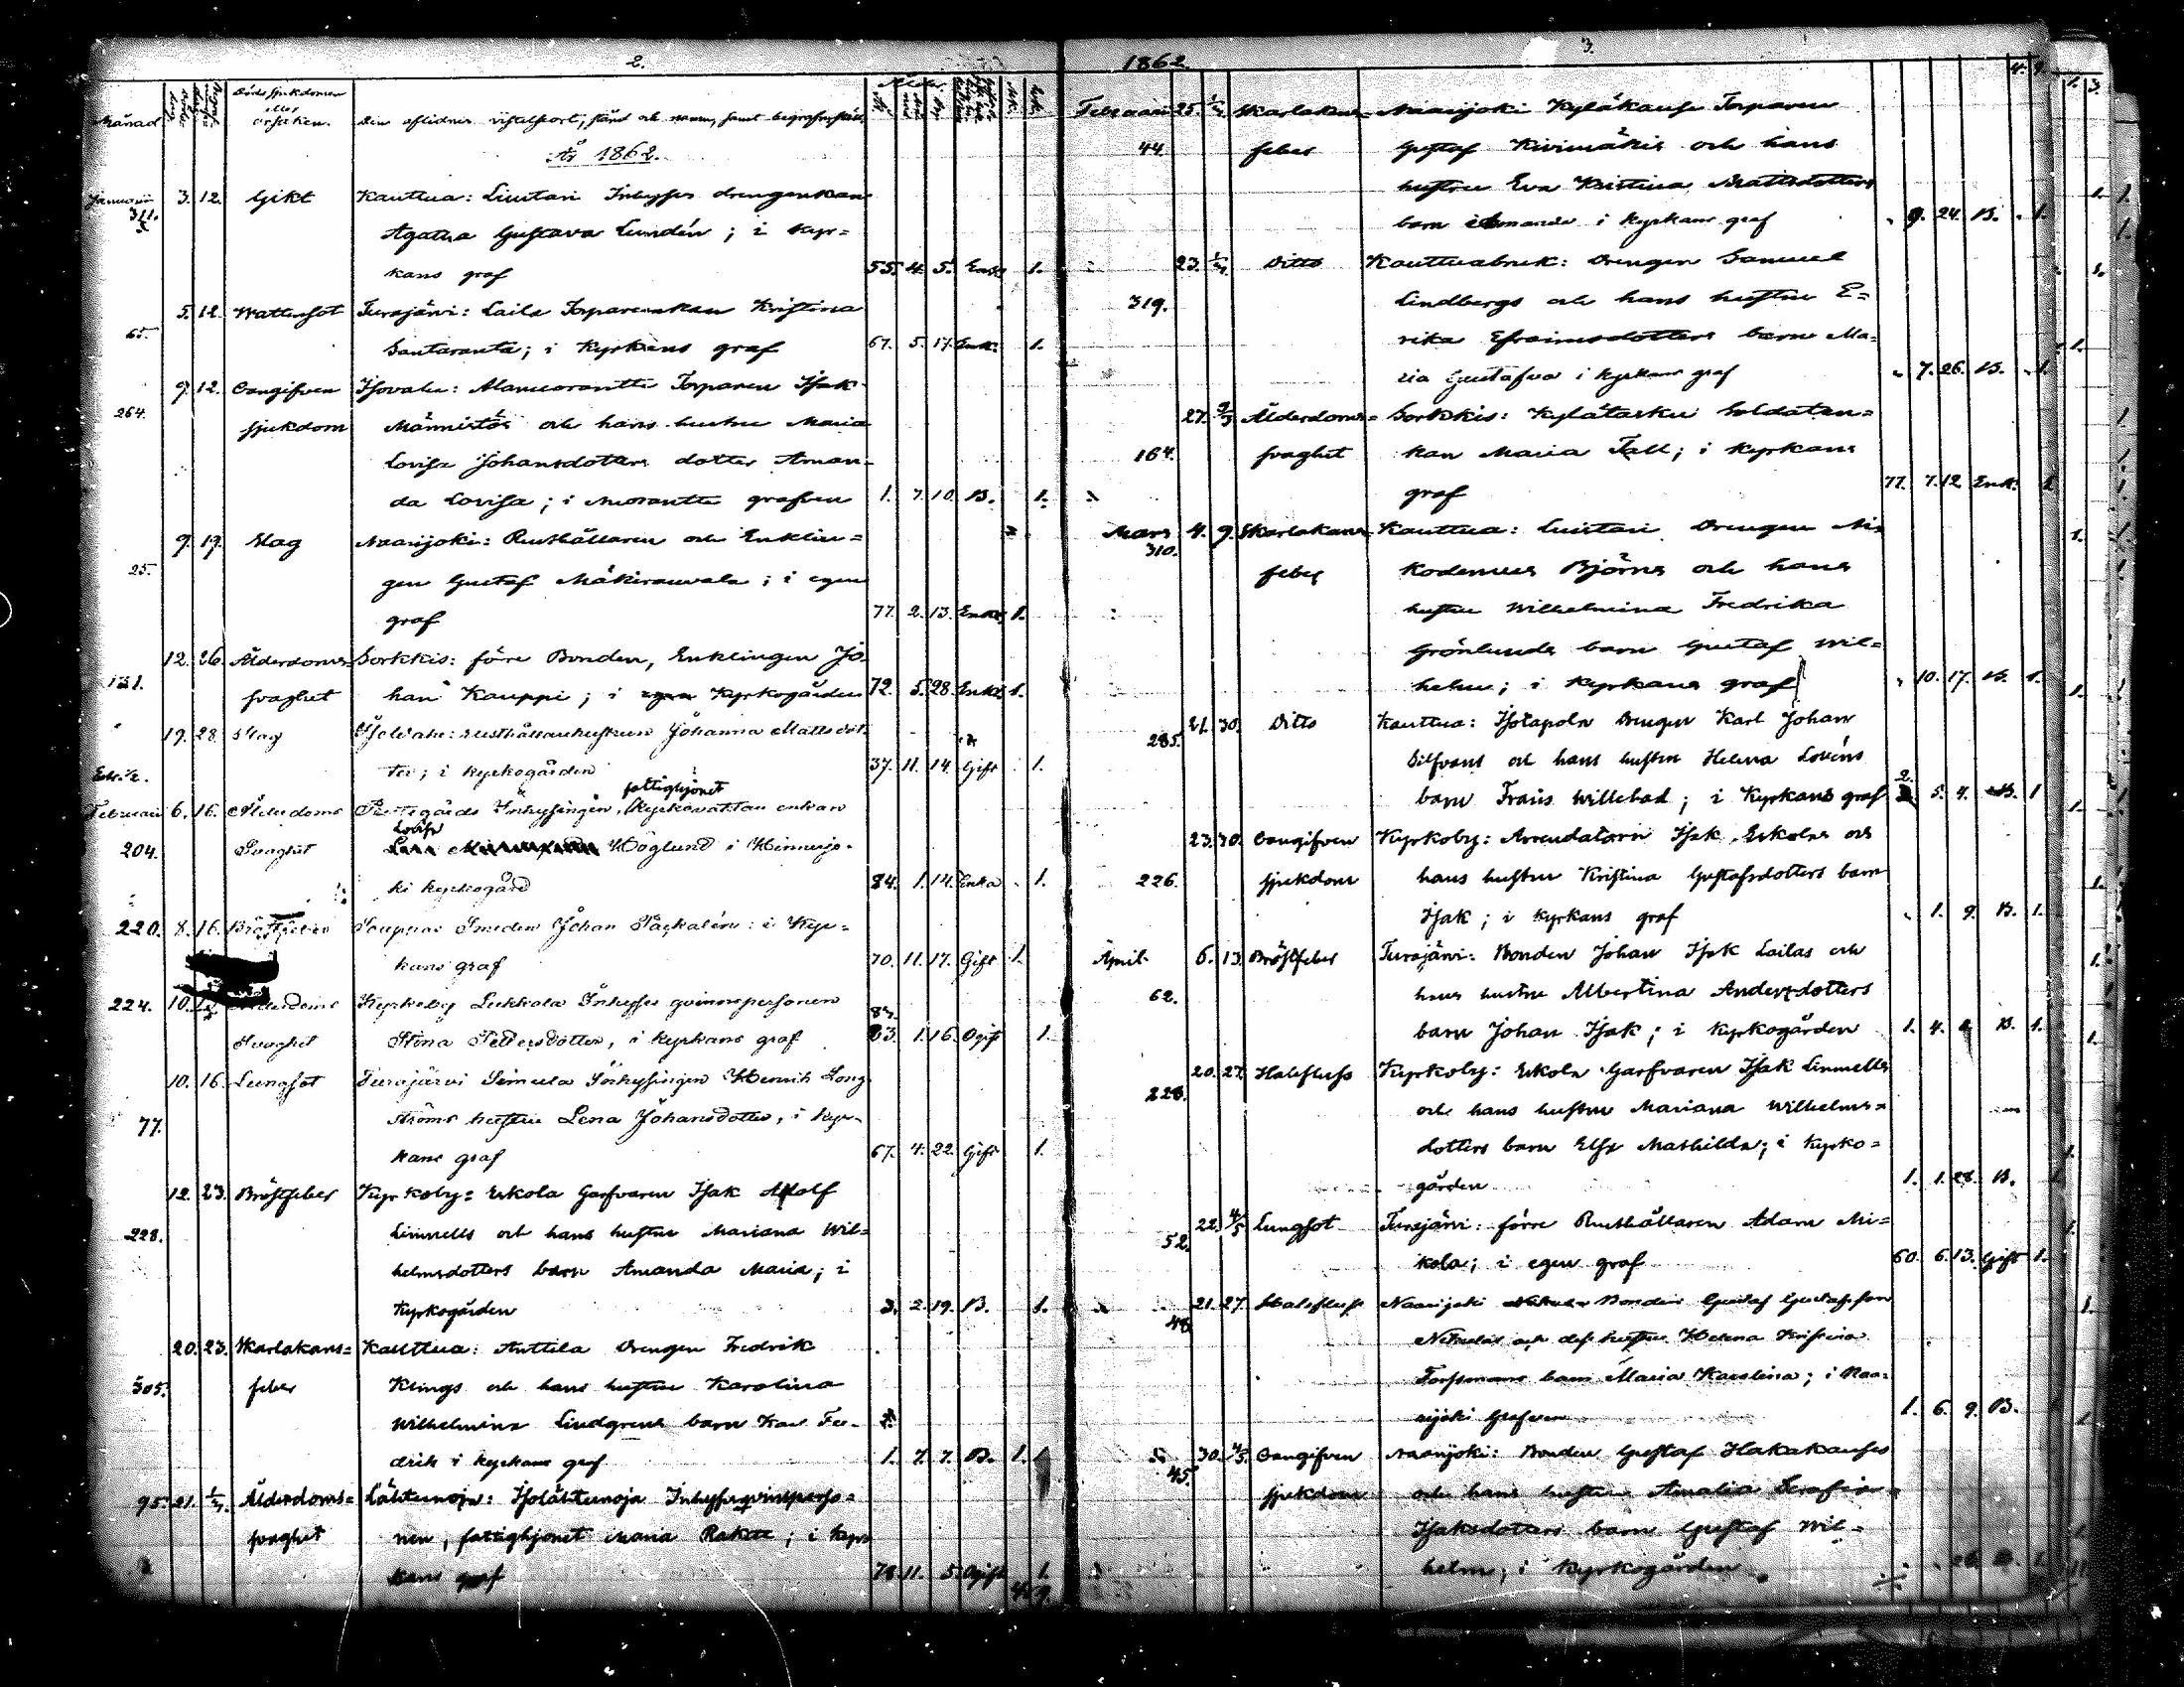 2.
Månad Döds sjukdomen eller orsaken. Den aflidnes vistelseort, stånd och namn, samt begrafn. Ålder
År 1862.
Januarii 3. 12. Gikt Kauttua: Luistari Inhyses drengenkan
311. Agatha Gustava Lundén; i kyr=
kans graf 55. 4. 5. Enk. 1.
5. 12. Wattusot Turajärvi: Laila Torparenkan Kristina
65. Santaranta; i Kyrkans graf 67. 5. 17. Enk. 1.
9. 12. Oangifven Isovahe: Torparen Isak
264. sjukdom Männistös och hans hustru Maria
Lovisa Johansdotters dotter Aman=
da Lovisa; i grafven 1. 7. 10. B. 1.
9. 19. Slag Naarijoki: Rusthållaren och Enklin=
25. gen Gustaf Mäkirauvala; i egen
graf 77. 2. 13. Enkl. 1.
12. 26. Ålderdoms= Sorkkis: förre Bonden, Enklingen Jo=
131. svaghet han Kauppi; i Kyrkogården 72. 5. 28. Enkl. 1.
19. 28. Slag rusthållarehustrun Johanna Mattsdot=
ter; i kyrkogården 37. 11. 14. Gift 1.
fattighjonet
Februarii 6. 16. Ålderdoms Inhysingen, Kyrkovaktar enkan
Lovisa
204. Svaghet Höglund i Hinnerjo=
ki kyrkogård 84. 1. 14. Enka 1.
220. 8. 16. Bröstfeber Smeden Johan Päckalén: i Kyr=
kans graf 70. 11. 17. Gift 1.
224. 10. Ålderdoms Kyrkoby Lukkola Inhyses qvinnspersonen
83.
Svaghet Stina Pettersdotter, i kyrkans graf 1. 16. Ogift 1.
10. 16. Lungsot Turajärvi Simula Inhysingen Henrik Long
77. ströms hustru Lena Johansdotter, i kyr=
kans graf 67. 4. 22. Gift 1.
12. 23. Bröstfeber Kyrkoby: Eskola Garfvaren Isak Adolf
228. Linnells och hans hustru Mariana Wil=
helmsdotters barn Amanda Maria; i
Kyrkogården 3. 2. 19. B. 1.
20. 23. Skarlakans= Kauttua: Anttila Drengen Fredrik
305. feber Klings och hans hustru Karolina
Wilhelmina Lindgrens barn Karl Fre=
drik i kyrkans graf 1. 7. 7. B. 1.
95. 21. Ålderdoms= Lähteenoja: Isolähteenoja Inhysesqvinsperso=
svaghet nen, fattighjonet Maria Rakett; i kyr=
kans graf 11. 5. Ogift 1.
4. 9.
1862. 3.
4. 9.
Februari 25. Skarlakans= Naarijoki Kyläkanfs Torparen
44. feber Gustaf Kivimäkis och hans
hustru Eva Kristina Mattsdotters
barn Amanda i Kyrkans graf 9. 24. B. 1.
23. Ditto Kauttuabruk: Drengen Samuel
319. Lindbergs och hans hustru E=
rika Efraimsdotters barn Ma=
ria Gustafva i kyrkans graf 7. 26. B. 1.
27. Ålderdoms= Sorkkis: Kylätasku Soldaten=
164. svaghet kan Maria Tall; i Kyrkans
graf 77. 7. 12. Enk. 1.
Mars 4. 9. Skarlakans= Kauttua: Luistari Drengen Ni=
310. feber kodemus Björns och hans
hustru Wilhelmina Fredrika
Grönlunds barn Gustaf Wil=
helm; i Kyrkans graf 10. 17. B. 1.
21. 30. Ditto Kauttua: Isotapola Drengen Karl Johan
285. Silfvans och hans hustru Helena Lovéns
barn Frans Willebad; i Kyrkans graf 2. 5. 4. B. 1
23. 30. Oangifven Kyrkoby: Arrendatorn Isak Eskolas och
226. sjukdom hans hustru Kristina Gustafsdotters barn
Isak; i kyrkans graf 1. 9. B. 1.
April 6. 13. Bröstfeber Turajärvi: Bonden Johan Isak Lailas och
62. hans hustru Albertina Andersdotters
barn Johan Isak; i kyrkogården 1. 4. B. 1.
20. 27. Halsfluss Kyrkoby: Eskola Garfvaren Isak Linnells
228. och hans hustru Mariana Wilhelms=
dotters barn Elsa Mathilda; i Kyrko=
gården 1. 1. 28. B.
22. 4/5 Lungsot Turajärvi: förre Rusthållaren Adam Mi=
52. kola; i egen graf 60. 6. 13. Gift 1.
21. 27. Halsfluss Naarijoki Bonden Gustaf Gustafsson
48. Nikulas och dess hustru Helena Kristina
Forssmans barn Maria Karolina; i Naa=
rijoki Grafven 1. 6. 9. B.
30. 4/5. Oangifven Naarijoki: Bonden Gustaf Hakakanfs
45. sjukdom och hans hustru Amalia Serafia
Isaksdotters barn Gustaf Wil=
helm; i Kyrkogården 26. B. 1.